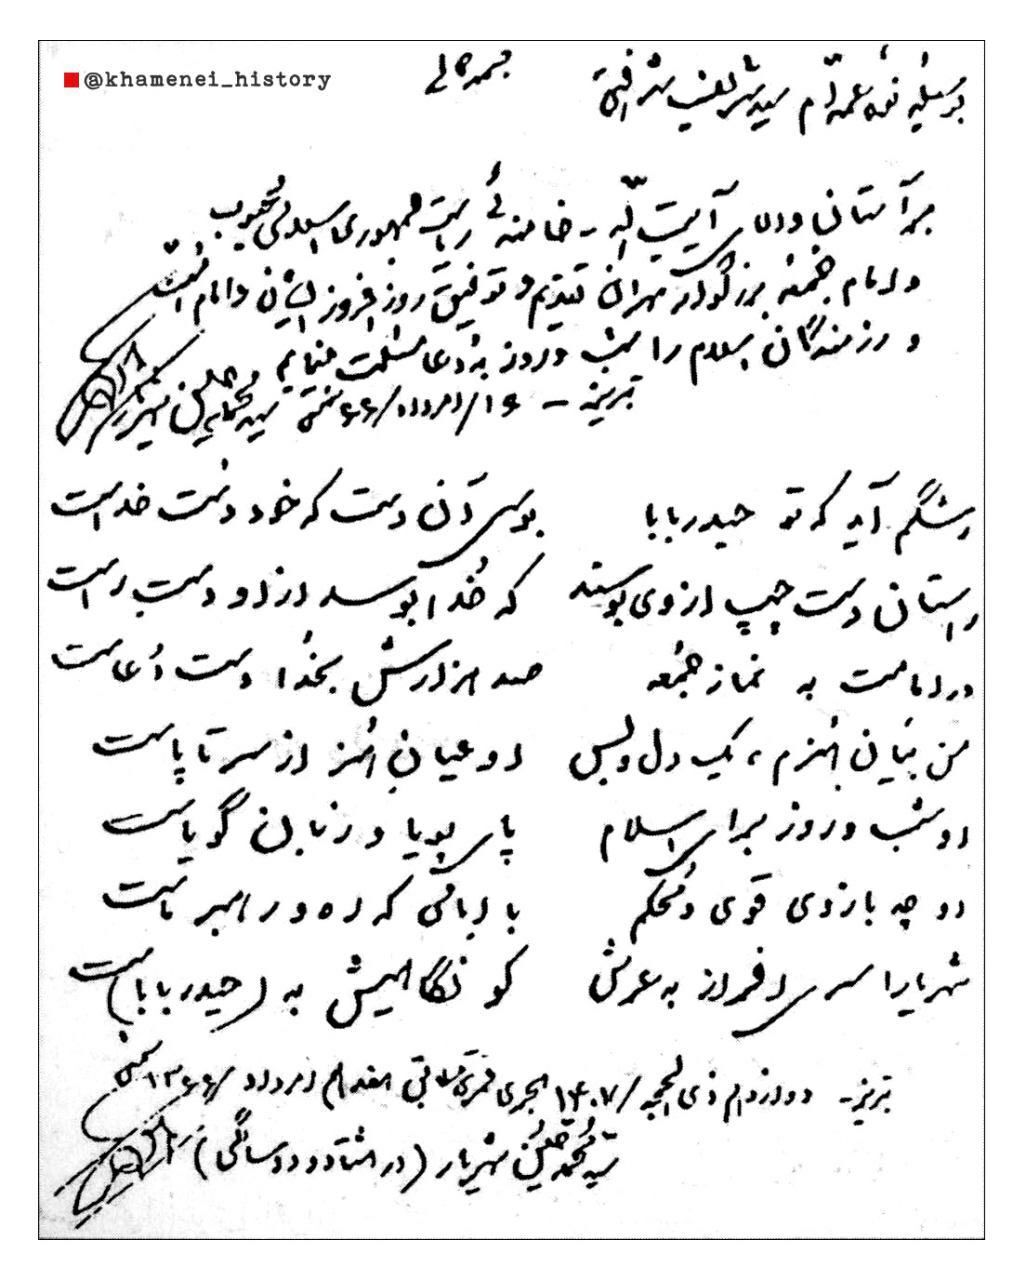 @khamenei_history
بسمه تعالی
بوسیله نوه عمه‌ام سید شریف
بر آستان والای آیت الله - خامنه‌ئی ریاست جمهوری اسلامی محبوب
و امام جمعه بزرگوار تهران تقدیم و توفیق روزافزون ایشان و امام امت
و رزمندگان اسلام را شب و روز به دعا مسئلت مینمایم
تبریز - ۱۶/امرداد/۶۶ شمسی سید محمدحسین شهریار
رشگم آید که تو حیدربابا
بوسی آن دست که خود دست خداست
راستان دست چپ از وی بوسند
که خدا بوسد از او دست راست
در امامت به نماز جمعه
صد هزارش بخدا دست دعاست
من بیان هنرم، یک دل و بس
او عیان هنر از سر تا پاست
او شب و روز برای اسلام
پای پویا و زبان گویاست
او چه بازوی قوی و محکم
با امامی که ره و رهبر ماست
شهریارا سری افراز به عرش
کو نگاهیش به (حیدربابا)ست
تبریز - دوازدهم ذی الحجه/۱۴۰۷ هجری قمری هفدهم امرداد/۱۳۶۶ شمسی
سید محمدحسین شهریار (در هشتاد و دو سالگی)